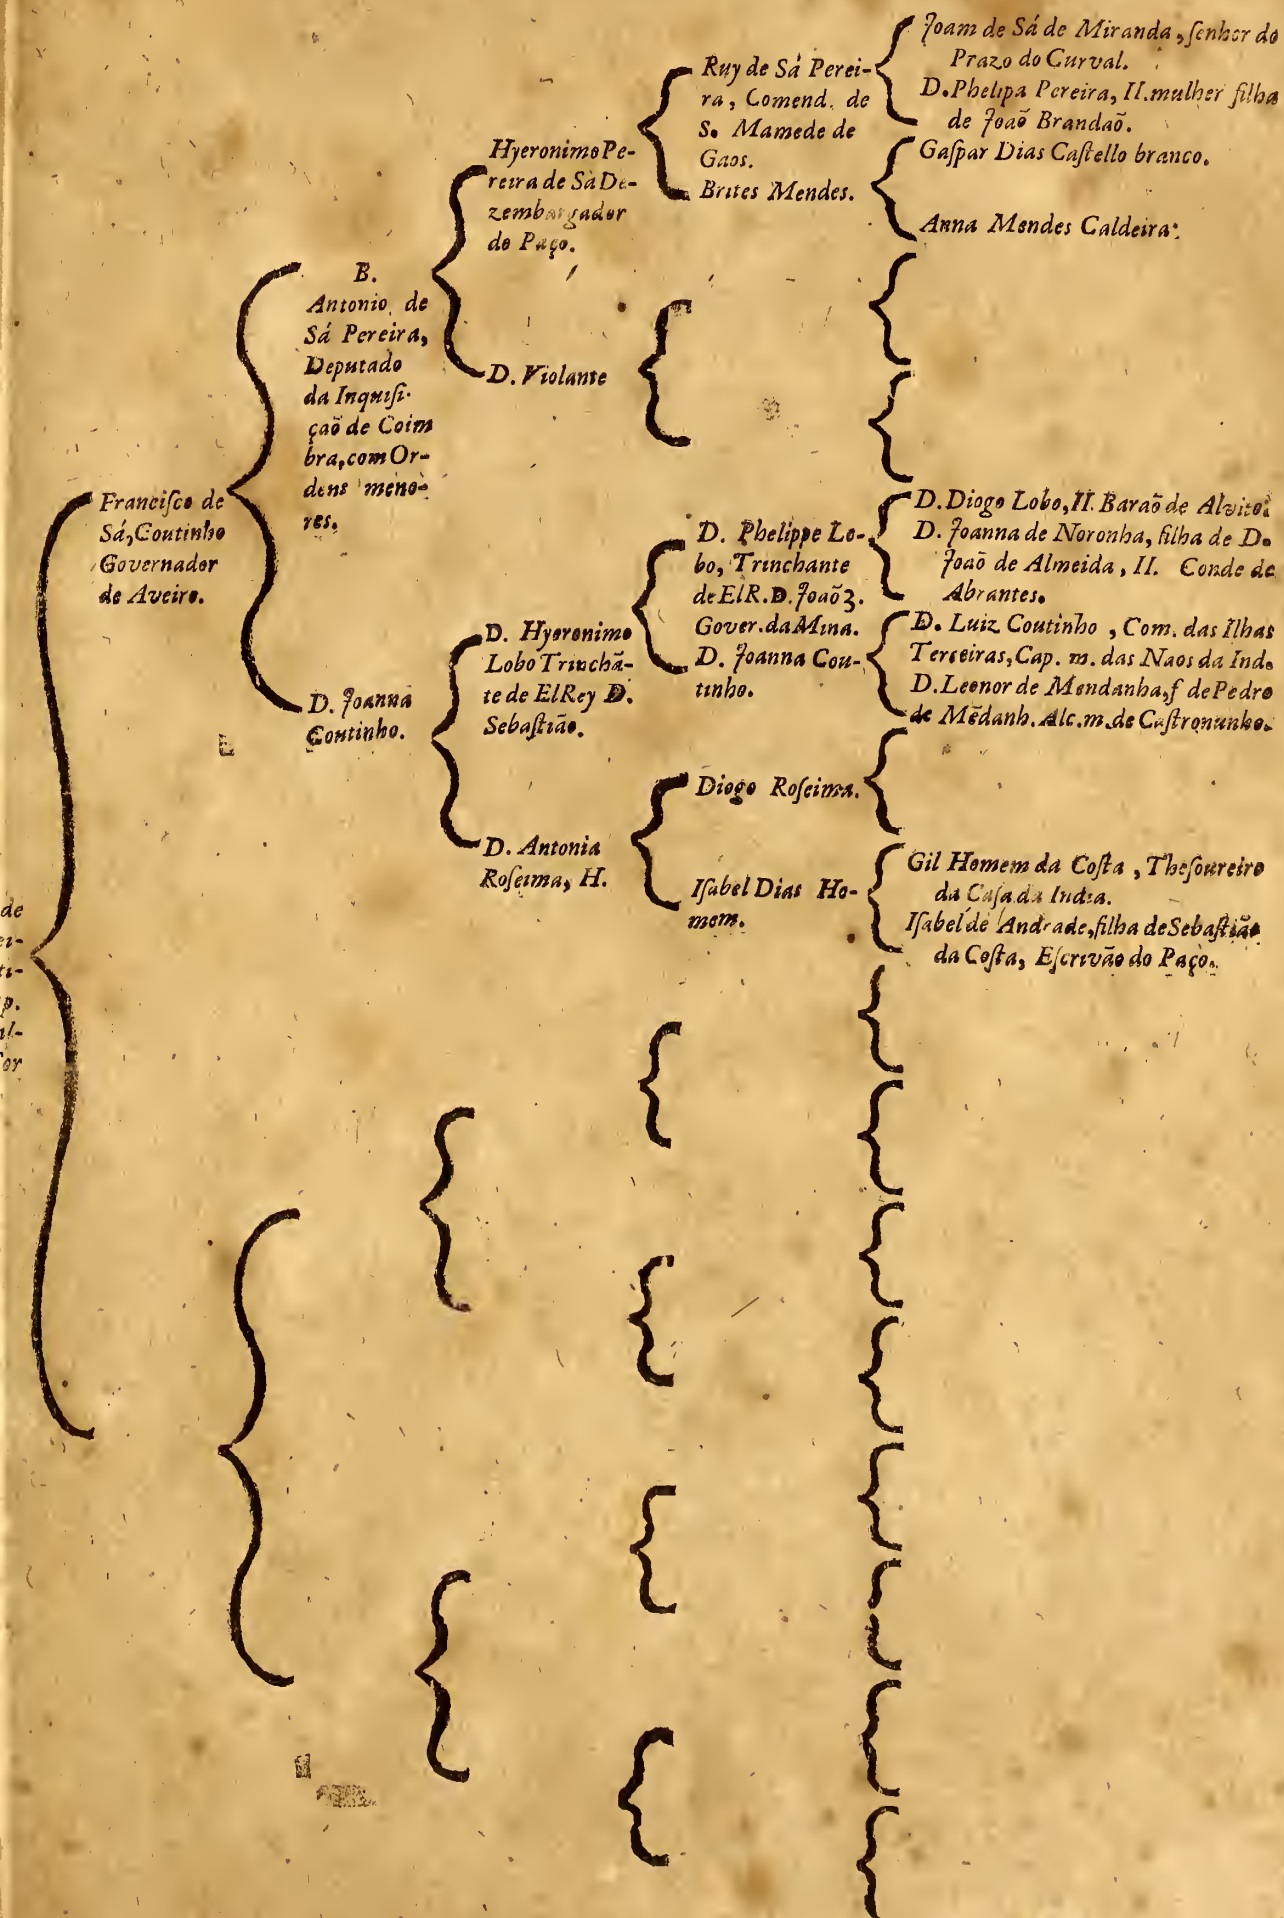 Francisco de
Sá, Coutinho
Governador
de Aveiro.
B.
Antonio de
Sá Pereira,
Deputado
da Inquisi-
çaõ de Coim
bra, com Or-
dens meno-
res.
D. Joanna
Coutinho.
Hyeronimo Pe-
reira de Sà De-
zembargador
do Paço.
D. Violante
D. Hyeronimo
Lobo Trinchã-
te de ElRey D.
Sebastiāo.
D. Antonia
Roseima, H.
Ruy de Sá Perei-
ra, Comend. de
S. Mamede de
Gaos.
Brites Mendes.
D. Phelippe Lo-
bo, Trinchante
de ElR. D. Joaõ 3.
Gover. da Mina.
D. Joanna Cou-
tinho.
Diogo Roseima.
Isabel Dias Ho-
mem.
Joam de Sá de Miranda, senhor do
Prazo do Curval.
D. Phelipa Pereira, II. mulher filha
de Joaõ Brandaõ.
Gaspar Dias Castello branco.
Anna Mendes Caldeira.
D. Diogo Lobo, II. Baraõ de Alvito.
D. Joanna de Noronha, filha de D.
Joaõ de Almeida, II. Conde de
Abrantes.
D. Luiz Coutinho, Com. das Ilhas
Terceiras, Cap. m. das Naos da Ind.
D. Leonor de Mendanha, f de Pedro
de Mēdanh. Alc. m. de Castronunho.
Gil Homem da Costa, Thesoureiro
da Casa da India.
Isabel de Andrade, filha de Sebastiāo
da Costa, Escrivāo do Paço.